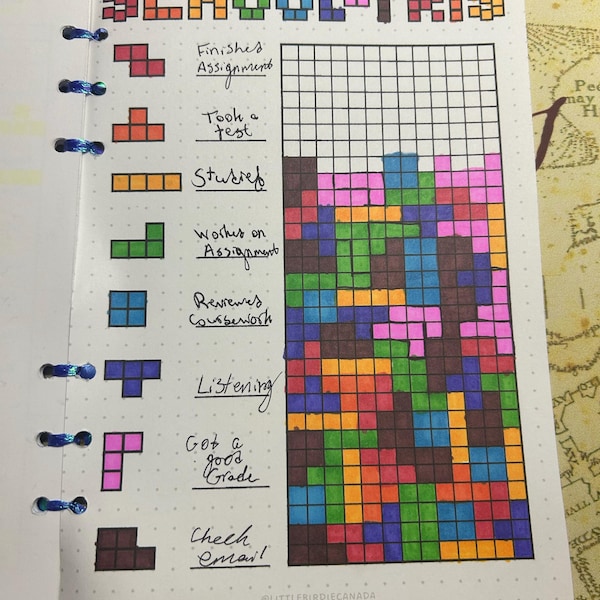 SCHOOL-TRIS
Finished
Assignment
Took a
test
Studied
Worked on
Assignment
Reviewed
Coursework
Listening
Got a
good
Grade
Check
email
@LITTLEBIRDIECANADA
may